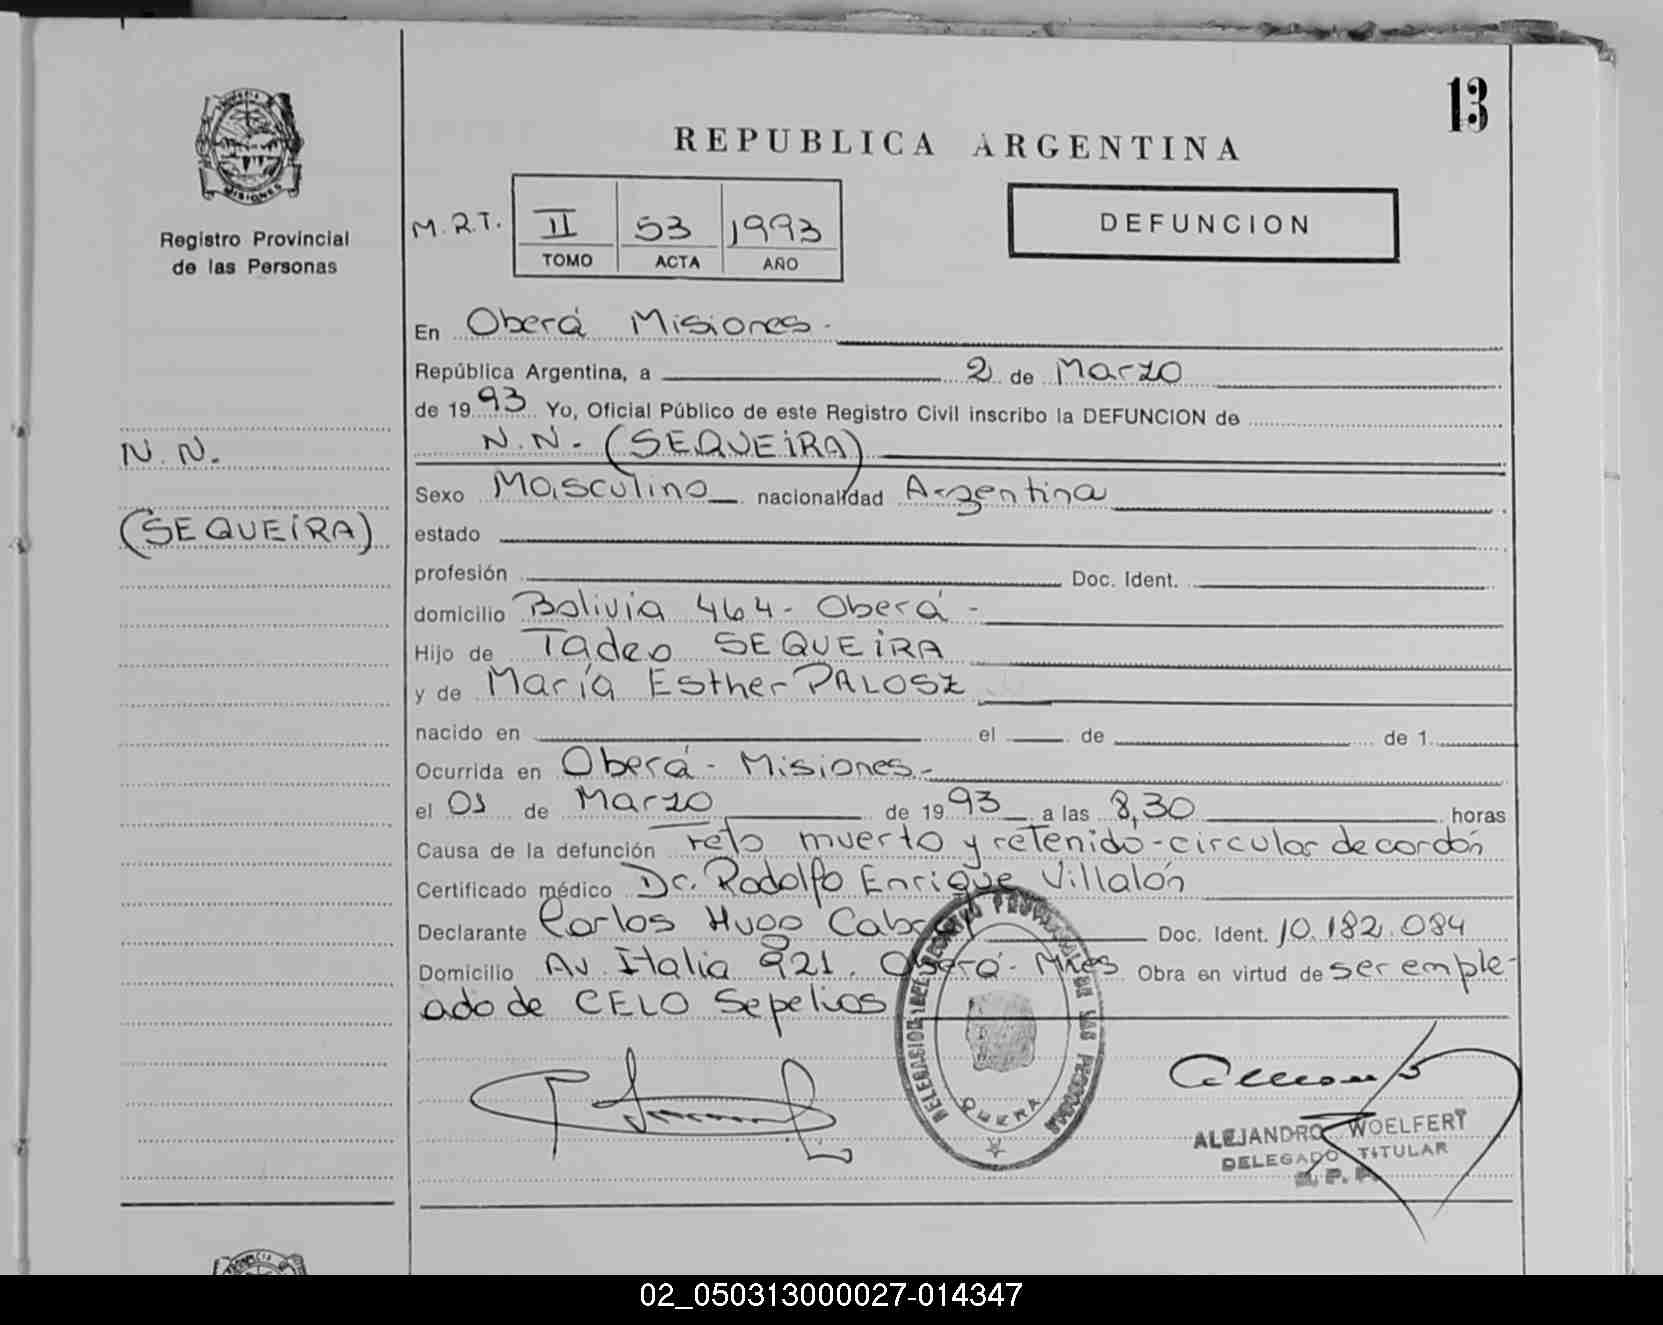 13
REPUBLICA ARGENTINA
Registro Provincial
de las Personas
M.R.T. II 53 1993
TOMO ACTA AÑO
DEFUNCION
En Oberá Misiones.
República Argentina, a 2 de Marzo
de 1993 Yo, Oficial Público de este Registro Civil inscribo la DEFUNCION de
N.N. (SEQUEIRA)
N.N.
(SEQUEIRA)
Sexo Masculino nacionalidad Argentina
estado
profesión Doc. Ident.
domicilio Bolivia 464 - Oberá -
Hijo de Tadeo SEQUEIRA
y de María Esther PALOSZ
nacido en el de de 1
Ocurrida en Oberá - Misiones -
el 01 de Marzo de 1993 a las 8,30 horas
Causa de la defunción Feto muerto y retenido - circular de cordón
Certificado médico Dr. Rodolfo Enrique Villalón
Declarante Carlos Hugo Doc. Ident. 10.182.084
Domicilio Av. Italia 921. Oberá - Mnes Obra en virtud de ser emple-
ado de CELO Sepelios
DELEGACION DEL REGISTRO PROVINCIAL DE LAS PERSONAS
OBERA
ALEJANDRO WOELFERT
DELEGADO TITULAR
R. P. P.
02_050313000027-014347